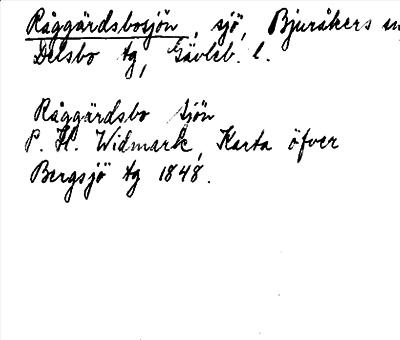 Råggärdsbosjön, sjö, Bjuråkers sn,
Delsbo tg, Gävleb. l.
Råggärdsbo sjön
P. H. Widmark, Karta öfver
Bergsjö tg 1848.